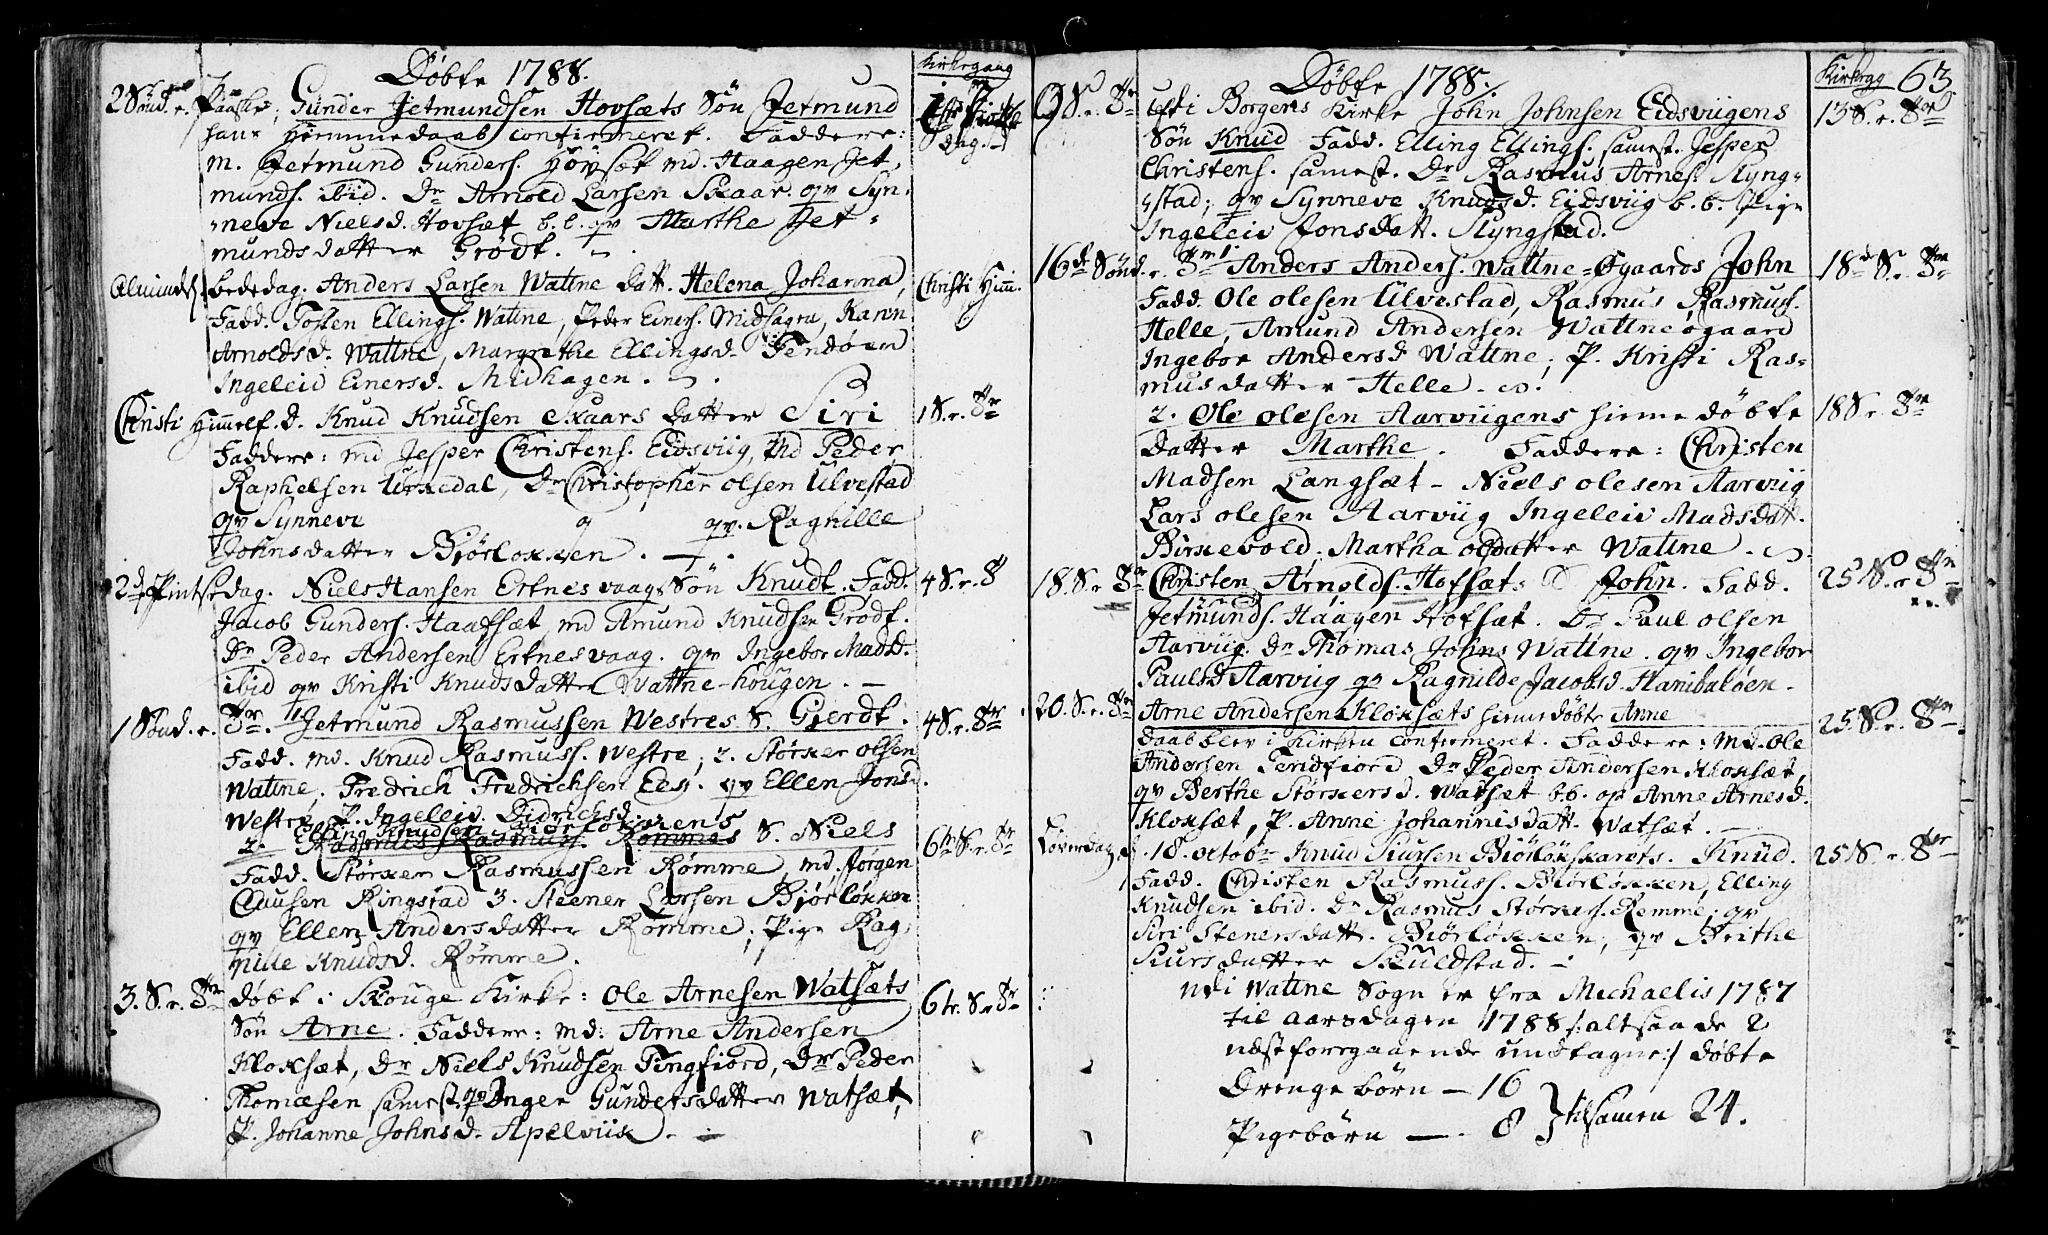 Døbte 1788.
Kirkegang
2 Sønd. e. Paaske; Gunder Jetmundsen Hovsæts Søn Jetmund
hans Hjemmedaab confirmeret. Faddere:
dag.
m. Jetmund Gunders. Hovsæt md. Haagen Jet,
munds. ibid. Dr Arnold Larsen Skaar. qv Syn-
neve Nielsd. Hovsæt b.b. qv Marthe Jet-
mundsdatter Grødt.
Almindel. bededag. Anders Larsen Watne Datt. Helena Johanna,
Christi Him.
Fadd. Tosten Ellings. Watne, Peder Einers. Midhagen, Karen
Arnoldsd. Watne, Margrethe Ellingsd. Fendøen
Ingeleid Einersd. Midhagen.
Christi Himelf. D. Knud Knudsen Skaars Datter Siri
1 S. e. 3tr
Faddere: md Jesper Christens. Eidsviig, md Peder
Raphelsen Urkedal, Dr Christopher olsen Ulvestad
qv Synneve qv. Raghille
Johnsdatter Bjørløkken.
2d Pintsedag. Niels Hansen Ertnesvaags Søn Knudt. Fadd.
4 S. e. 3
Jacob Gunders. Haafsæt, md Amund Knudsen Grødt.
Dr Peder Andersen Ertnesvaag. qv Ingebor Madsd.
ibid qv Kristi Knudsdatter Wattne-hougen.
1 Sønd. e. 3tr. 1. Jetmund Rasmussen Westres S. Gierdt.
4 S. e. 3tr
Fadd. md. Knud Rasmuss. Westre, 2. Størker olsen
Watne, Fredrich Fredrichsen Eeg. qv Ellen Jonsd.
Westre, P. Ingeleiv Didrichsd.
Elling Knudsen Biørløkkens
2. Rasmus Rasmuss. Rømmes S. Niels
6te S. e. 3tr
Fadd. Størker Rasmussen Rømme, md. Jørgen
Clausen Ringstad 3. Steener Larsen Bjørløkken
qv Ellen Andersdatter Rømme; Pige Rag-
nille Knudsd. Rømme.
3. S. e. 3tr døbt i Skouge Kirke: Ole Arnesen Watsæts
6te S. e 3tr
Søn Arne. Faddere: md: Arne Andersen
Kloksæt, Dr Niels Knudsen Tingfiord, Dr Peder
Thomæsen samest. qv Inger Gundersdatter Watsæt,
P. Johanne Johnsd. Apelviik.
Døbte 1788.
Kirkegg 63
9 S. e. 3tr udi Borgens Kirke John Johnsen Eidsviigens
13 S. e. 3tr
Søn Knud Fadd. Elling Ellings. samest. Jesper
Christens. samest. Dr Rasmus Arnes. Slyng-
stad; qv Synneve Knudsd. Eidsviig b.b. Pige
Ingeleiv Jonsdatt. Slyngstad.
16de Sønd. e. 3tr 1 Anders Anders. Wattne-Øgaards John
18d S. e. 3tr
Fadd. Ole olesen Ulvestad, Rasmus Rasmuss.
Helle, Amund Andersen Wattneøgaard
Ingebor Andersd. Wattne; P. Kristi Ras-
musdatter Helle.
2. Ole olesen Aarviigens hiemedøbte
18 S. e. 3tr
Datter Marthe. Faddere: Christen
Madsen Langsæt - Niels olesen Aarviig
Lars olesen Aarviig Ingeleiv Madsdatt.
Birkevold. Martha olsdatter Watne.
18. S. e. 3tr Christen Arnolds. Hofsæts S John. Fadd.
25 S. e 3tr
Jetmunds. Haagen Hofsæt. Dr Paul olsen
Aarviig. Dr Thomas Johns Wattne. qv Ingebor
Paulsd Aarviig qv Ragnilde Jacobsd. Hanibaløen.
20. S. e. 3tr Arne Andersen Kloksæts hiemedøbte Anne
25. S. e. 3tr
Daab blev i Kirken confirmeret. Faddere: md. Ole
Andersen Tenfiord Dr Peder Andersen Kloksæt,
qv Berthe Størkersd. Watsæt b.b. qv Anne Arnesd.
Kloksæt, P. Anne Johannisdatt. Watsæt.
Løverdag d. 18. octobr Knud Siursen Biørløkskarets. Knud.
25 S. e. 3tr
Fadd. Christen Rasmuss. Biørløkken, Elling
Knudsen ibid. Dr Rasmus Størkers. Remme; qv
Siri Stenersdatt. Biørløkken, qv Brithe
Siursdatter Skuldstad.
Udi Wattne Sogn er fra Michaelis 1787
til aarsdagen 1788 /: altsaa de 2
næst foregaaende undtagne :/ døbte
Drengebørn — 16
Pigebørn —. 8 } tilsamen 24.